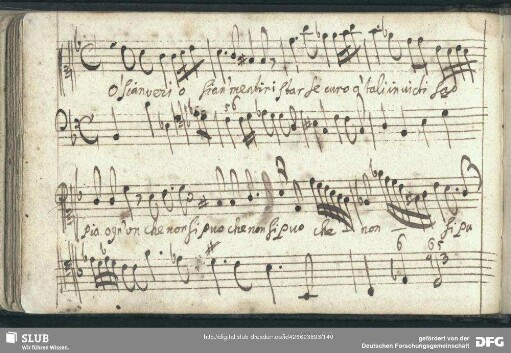 O' sian veri o sian mentiri star se curo q'tali in victi sap
5 6
pia ogn'on che non si puo che non si puo che non si pu
6 6 5
4 3
SLUB
Wir führen Wissen.
http://digital.slub-dresden.de/id426603893/140
gefördert von der
Deutschen Forschungsgemeinschaft
DFG